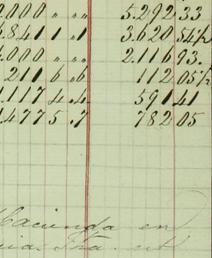 .000 „ „„ 5.292 33
.841 1 „1 3.620 54½
.000 „ „„ 2.116 93.
.211 6 „6 112 05½
.117 4 „4. 591 41
.477 5 „7 782 05
Hacienda en